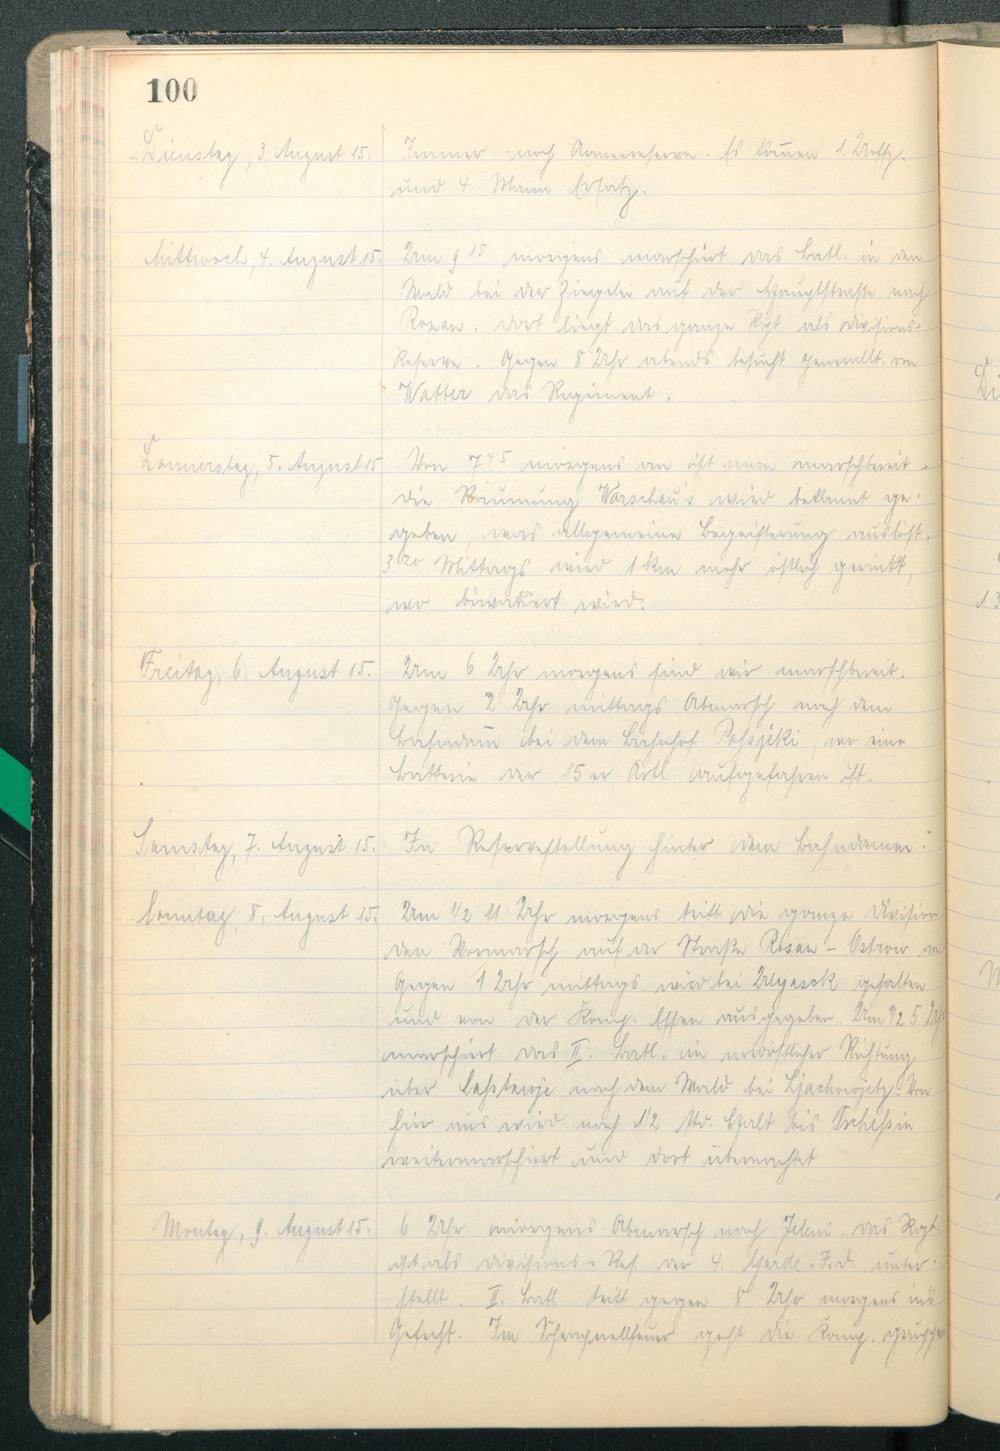 100
Dienstag, 3. August 15. Immer noch Armeereserve. Es kom̄en 1 Uoffz.
und 4 Mann Ersatz.
Mittwoch, 4. August 15. Um 9 15 morgens marschiert das Batl. in den
Wald bei der Ziegelei auf der Hauptstraße nach
Rozan. Dort liegt das ganze Rgt als Divisions-
Reserve. Gegen 8 Uhr abends besucht Generallt. von
Watter das Regiment.
Donnerstag, 5. August 15 Von 7 45 morgens an ist man marschbereit.
Die Räumung Warschau's wird bekannt ge-
geben, was allgemeine Begeisterung auslöst.
3 20 Mittags wird 1 km mehr östlich gerückt,
wo biwakiert wird.
Freitag, 6. August 15. Um 6 Uhr morgens sind wir marschbereit.
Gegen 2 Uhr mittags Abmarsch nach dem
Bahndam̄ bei dem Bahnhof Pasjeki, wo eine
Batterie der 15er Artl. aufgefahren ist.
Samstag, 7. August 15. In Reservestellung hinter dem Bahndamm.
Sonntag, 8. August 15. Um 1/2 11 Uhr morgens tritt die ganze Division
den Vormarsch auf der Straße Rosan - Ostrow an
Gegen 1 Uhr mittags wird bei gehalten
und von der Komp. Essen ausgegeben. Um 1/2 5 Uhr
marschiert das II. Batl. in nordöstlicher Richtung
über nach dem Wald bei Von
hier aus wird nach 1/2 Std. Halt bis
weitermarschiert und dort übernachtet
Montag, 9. August 15. 6 Uhr morgens Abmarsch nach Jeleni. Das Rgt
ist als Divisions-Res. der 4. Garde-I.D. unter-
stellt. II. Batl. tritt gegen 8 Uhr morgens ins
Gefecht. Im Schrapnellfeuer geht die Komp.